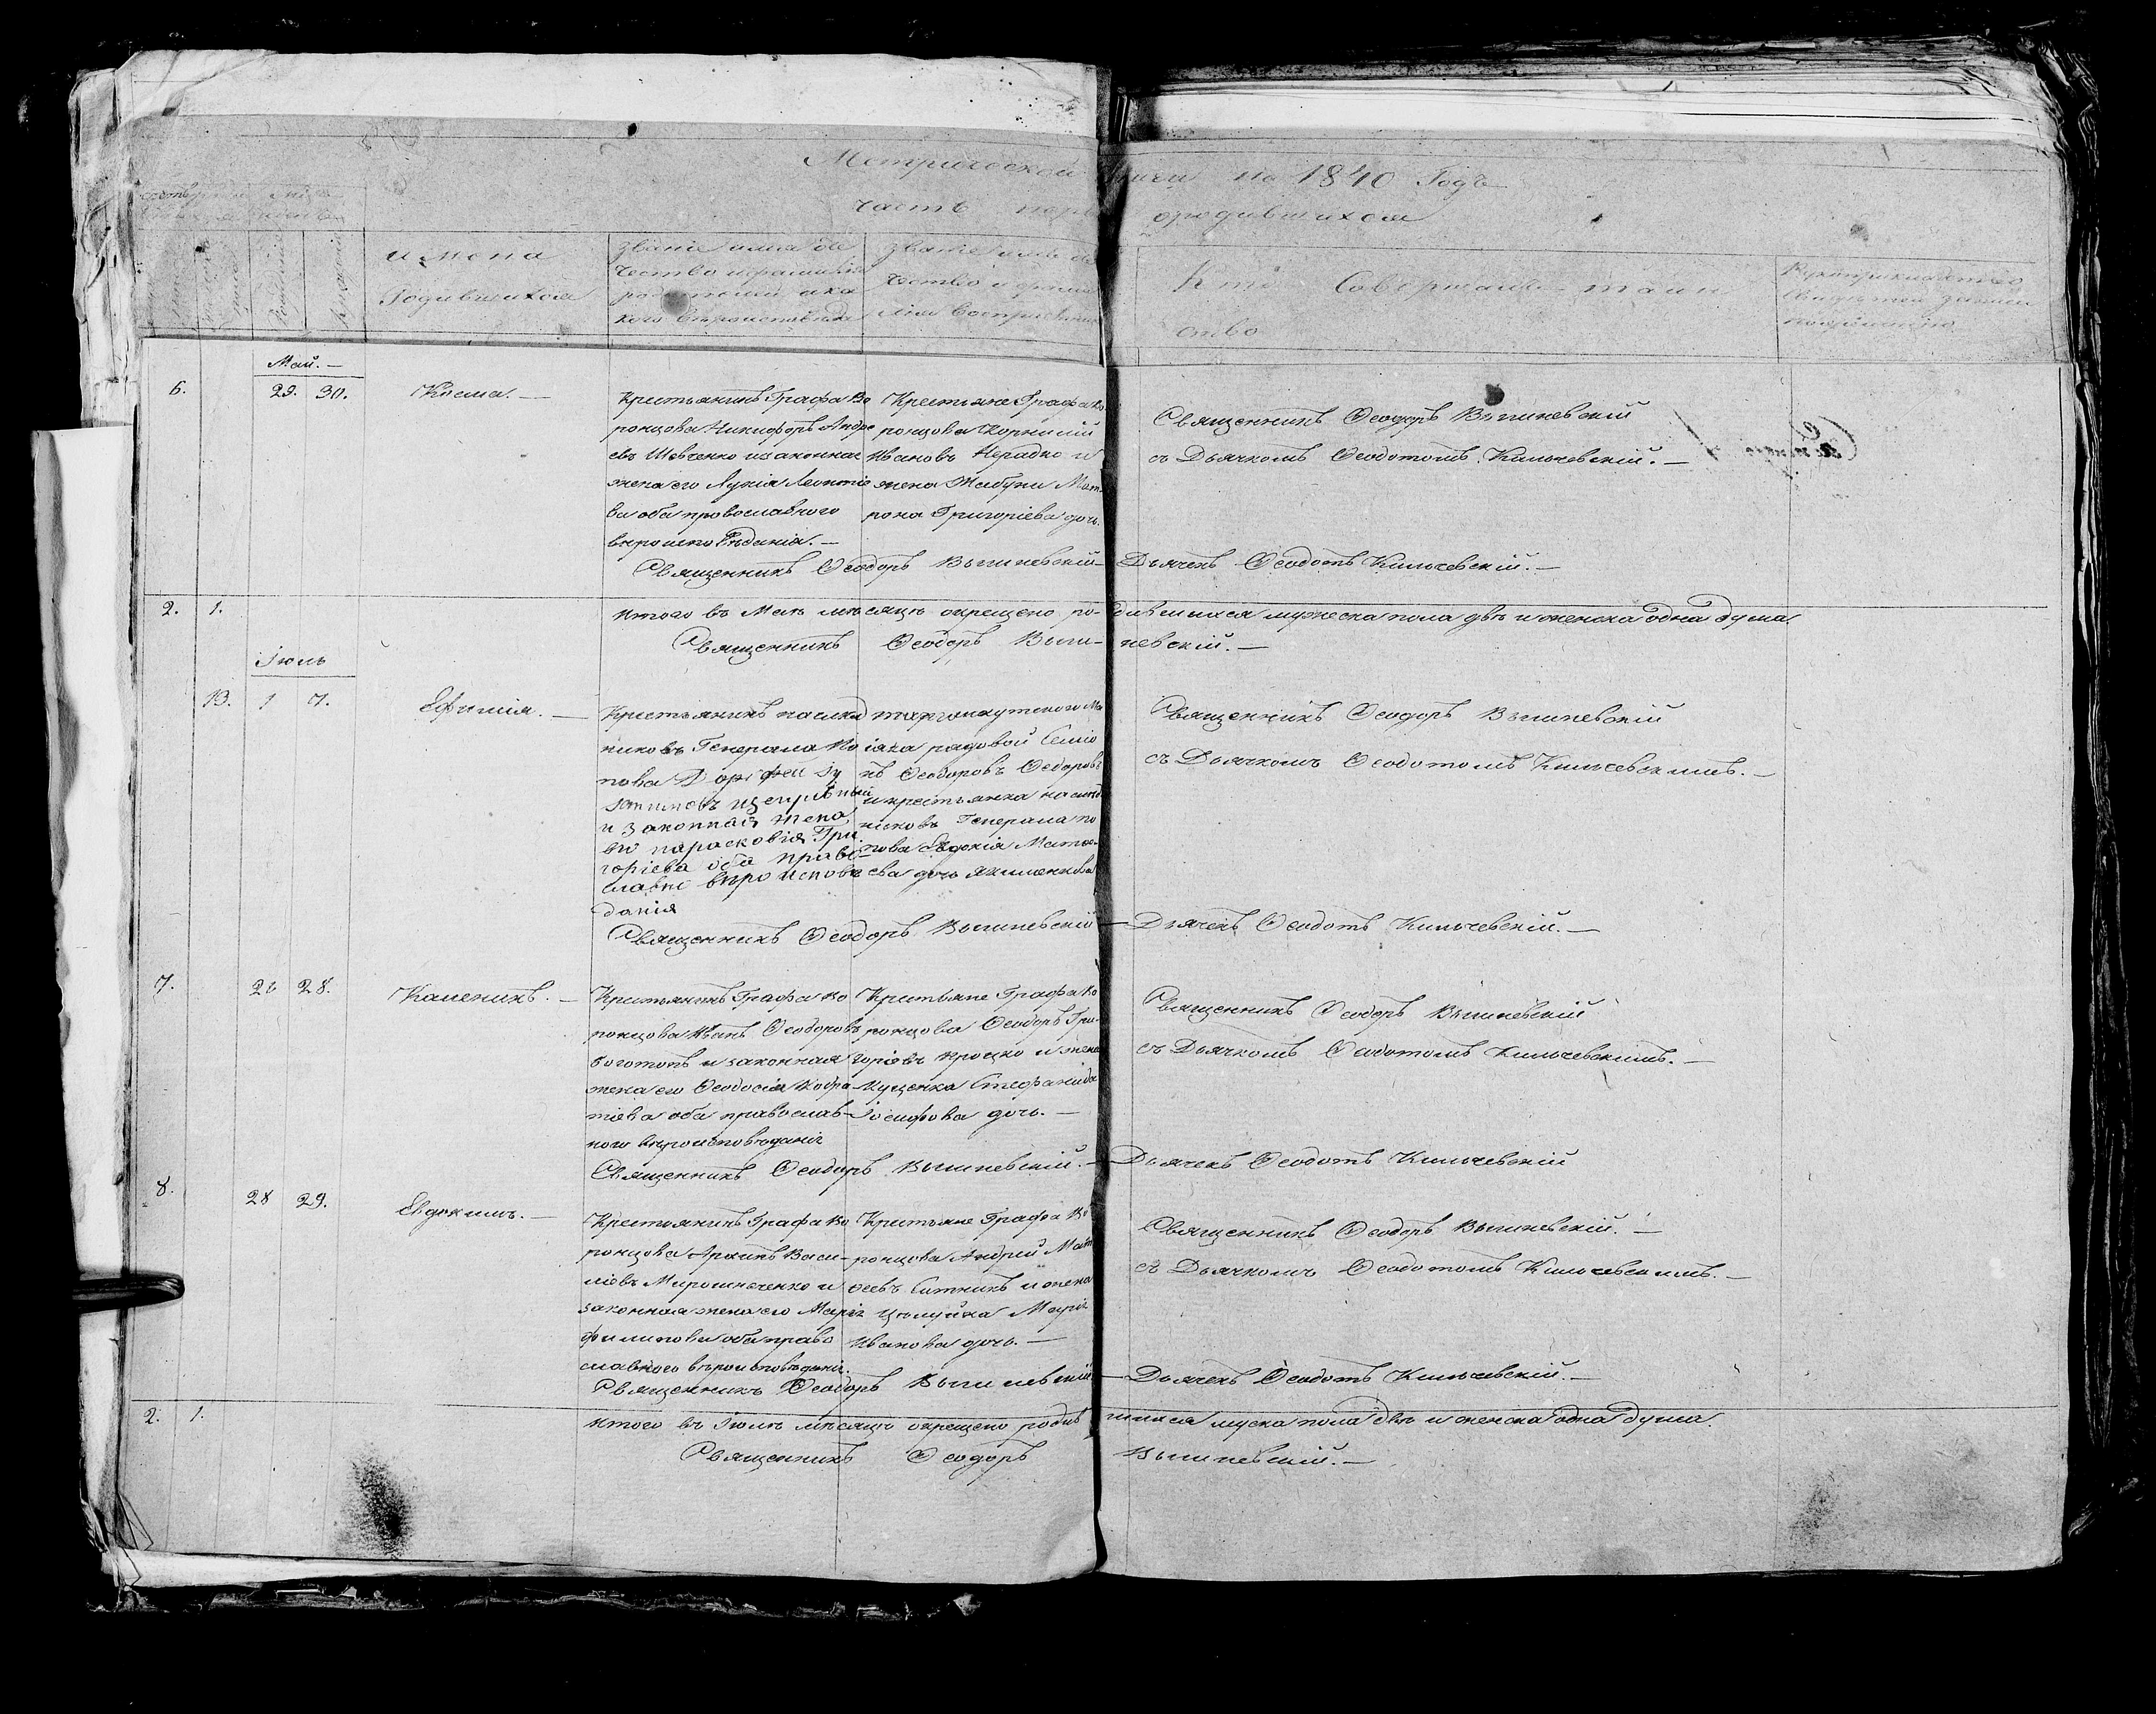 Метрической книги на 1840 Годъ
часть перв о родившихся
имена
Родившихся
Званіе имя оте
чество и фамилія
родителей и ка
кого вѣроисповѣда
Званіе имя оте
чество и фами
лія Воспріемник
Кто Совершалъ таин
ство
Рукоприкладство
Май. —
6. 29. 30. Косма. —
Крестьянинъ Графа Во
ронцова Никифоръ Андре
евъ Шевченко и законная
жена его Лукія Леонтіе
ва оба православного
вѣроисповѣданія. —
Крестьяне Графа Во
ронцова Корнилій
Ивановъ Нерадко и
жена Мат
рона Григоріева дочь.
Священникъ Ѳеодоръ Вышневскій
съ Дьячкомъ Ѳеодотомъ Кильчевскій. —
Священникъ Ѳеодоръ Вышневскій — Дьячекъ Ѳеодотъ Кильчевскій. —
2. 1. Итого въ Маѣ мѣсяцѣ окрещено родившихся мужеска пола двѣ и женска одна душа
Священникъ Ѳеодоръ Вышневскій. —
Іюль
13. 1 7. Ефимія. —
Крестьянинъ наслѣд
никовъ Генерала По
пова Дорофей

и законная жена
его Парасковія Гри
горіева оба право
славно вѣроисповѣ
данія
рядовой Семіо
нъ Ѳеодоровъ Ѳедоровъ
и крестьянка наслѣд
никовъ Генерала По
пова Евдокія Матве
ева дочь Якименкова
Священникъ Ѳеодоръ Вышневскій
съ Дьячкомъ Ѳеодотомъ Кильчевскимъ. —
Священникъ Ѳеодоръ Вышневскій — Дьячекъ Ѳеодотъ Кильчевскій. —
7. 28. Каленикъ. —
Крестьянинъ Графа Во
ронцова Иванъ Ѳеодоровъ
Боготопъ и законная
жена его Ѳеодосія Кодра
тіева оба православ
ного вѣроисповѣданія
Крестьяне Графа Во
ронцова Ѳеодоръ Гри
горіевъ Процко и жена
Куценка Стефанида
Іосифова дочь. —
Священникъ Ѳеодоръ Вышневскій
съ Дьячкомъ Ѳеодотомъ Кильчевскимъ. —
Священникъ Ѳеодоръ Вышневскій. — Дьячекъ Ѳеодотъ Кильчевскій
8. 28 29. Евдокимъ. —
Крестьянинъ Графа Во
ронцова Архипъ Васи
ліевъ Мирошниченко и
законная жена его Марія
Филипова оба право
славного вѣроисповѣданія.
Крестьяне Графа Во
ронцова Андрей Мат
веевъ Ситникъ и жена
Марія
Иванова дочь. —
Священникъ Ѳеодоръ Вышневскій. —
съ Дьячкомъ Ѳеодотомъ Кильчевскимъ. —
Священникъ Ѳеодоръ Вышневскій — Дьячекъ Ѳеодотъ Кильчевскій. —
2. 1. Итого въ Іюлѣ мѣсяцѣ окрещено родившихся муска пола двѣ и женска одна душа.
Священникъ Ѳеодоръ Вышневскій. —